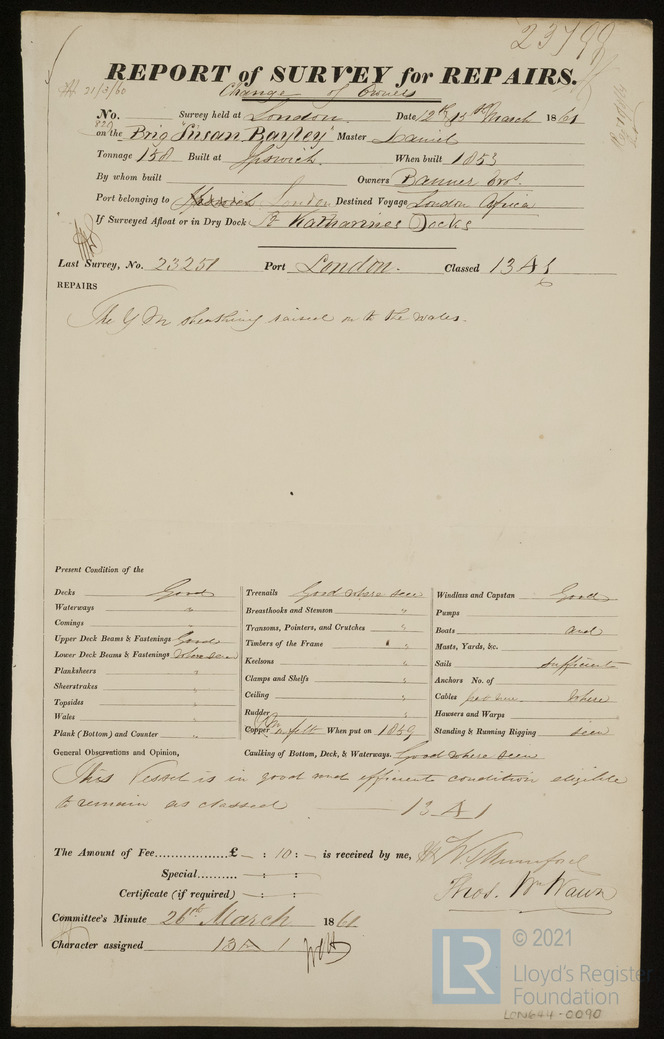 REPORT of SURVEY for REPAIRS.
21/3/60
Change of Owners
No. Survey held at London Date 12th, 13th March 1861
on the Brig "Susan Bayley" Master Daniel
Tonnage 158 Built at Ipswich. When built 1853
By whom built Owners Banner Bros.
Port belonging to London Destined Voyage London Africa
If Surveyed Afloat or in Dry Dock St Katharines Docks
Last Survey, No. 23251 Port London. Classed 13 A 1
REPAIRS
The YM sheathing raised on to the wales.
Present Condition of the
Decks Good
Waterways "
Comings "
Upper Deck Beams & Fastenings Good
Lower Deck Beams & Fastenings where seen
Planksheers "
Sheerstrakes "
Topsides "
Wales "
Plank (Bottom) and Counter "
Treenails Good where seen
Breasthooks and Stemson "
Transoms, Pointers, and Crutches "
Timbers of the Frame "
Keelsons "
Clamps and Shelfs "
Ceiling "
Rudder "
Copper YM on felt When put on 1859
Windlass and Capstan Good
Pumps
Boats and
Masts, Yards, &c.
Sails sufficient
Anchors No. of
Cables where
Hawsers and Warps
Standing & Running Rigging seen
General Observations and Opinion, Caulking of Bottom, Deck, & Waterways. Good where seen
This Vessel is in good and efficient condition eligible
to remain as classed 13 A 1
The Amount of Fee...................£ – : 10 : – is received by me,
Special........... – : – :
Certificate (if required) – : – :
Thos. Wm Wawn
Committee's Minute 26th March 1861
Character assigned 13 A 1
LR © 2021
Lloyd's Register
Foundation
LON644-0090